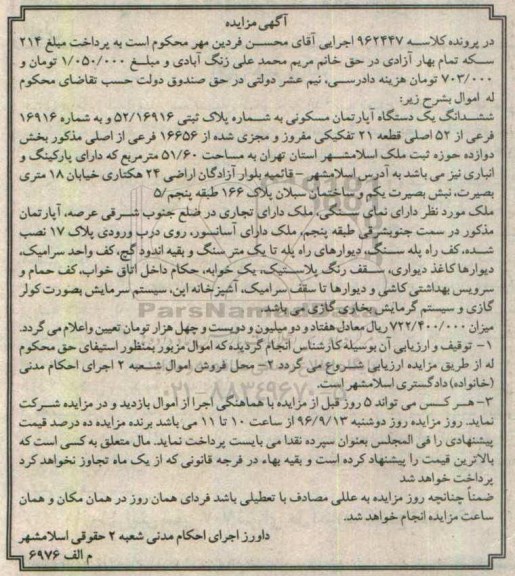 آگهی مزایده
در پرونده کلاسه ۹۶۲۴۴۷ اجرایی آقای محسن فردین مهر محکوم است به پرداخت مبلغ ۲۱۴
سکه تمام بهار آزادی در حق خانم مریم محمد علی زنگ آبادی و مبلغ ۱/۰۵۰/۰۰۰ تومان و
۷۰۳/۰۰۰ تومان هزینه دادرسی، نیم عشر دولتی در حق صندوق دولت حسب تقاضای محکوم
له اموال بشرح زیر:
ششدانگ یک دستگاه آپارتمان مسکونی به شماره پلاک ثبتی ۵۲/۱۶۹۱۶ و به شماره ۱۶۹۱۶
فرعی از ۵۲ اصلی قطعه ۲۱ تفکیکی مفروز و مجزی شده از ۱۶۶۵۶ فرعی از اصلی مذکور بخش
دوازده حوزه ثبت ملک اسلامشهر استان تهران به مساحت ۵۱/۶۰ مترمربع که دارای پارکینگ و
انباری نیز می باشد به آدرس اسلامشهر - قائمیه بلوار آزادگان اراضی ۲۴ هکتاری خیابان ۱۸ متری
بصیرت، نبش بصیرت یکم، ساختمان سبلان پلاک ۱۶۶ طبقه پنجم/۵
ملک مورد نظر دارای نمای سنگی، ملک دارای تجاری در ضلع جنوب شرقی عرصه، آپارتمان
مذکور در سمت جنوبشرقی طبقه پنجم، ملک دارای آسانسور، روی درب ورودی پلاک ۱۷ نصب
شده، کف راه پله سنگ، دیوارهای راه پله تا یک متر سنگ و بقیه اندود گچ، کف واحد سرامیک،
دیوارها کاغذ دیواری، سقف رنگ پلاستیک، یک خوابه، حکام داخل اتاق خواب، کف حمام و
سرویس بهداشتی کاشی و دیوارها تا سقف سرامیک، آشپزخانه اپن، سیستم سرمایش بصورت کولر
گازی و سیستم گرمایش بخاری گازی می باشد.
میزان ۷۲۲/۴۰۰/۰۰۰ ریال معادل هفتاد و دو میلیون و دویست و چهل هزار تومان تعیین و اعلام می گردد.
۱- توقیف و ارزیابی آن بوسیله کارشناس انجام گردیده که اموال مزبور بمنظور استیفای حق محکوم
له از طریق مزایده ارزیابی شروع می گردد ۲- محل فروش اموال شعبه ۲ اجرای احکام مدنی
(خانواده) دادگستری اسلامشهر است.
۳- هر کس می تواند ۵ روز قبل از مزایده با هماهنگی اجرا از اموال بازدید و در مزایده شرکت
نماید. روز مزایده روز دوشنبه ۹۶/۹/۱۳ از ساعت ۱۰ تا ۱۱ می باشد برنده مزایده ده درصد قیمت
پیشنهادی را فی المجلس بعنوان سپرده نقدا می بایست پرداخت نماید. مال متعلق به کسی است که
بالاترین قیمت را پیشنهاد کرده است و بقیه بهاء در فرجه قانونی که از یک ماه تجاوز نخواهد کرد
پرداخت خواهد شد
ضمناً چنانچه روز مزایده به عللی مصادف با تعطیلی باشد فردای همان روز در همان مکان و همان
ساعت مزایده انجام خواهد شد.
داورز اجرای احکام مدنی شعبه ۲ حقوقی اسلامشهر
م الف ۶۹۷۶